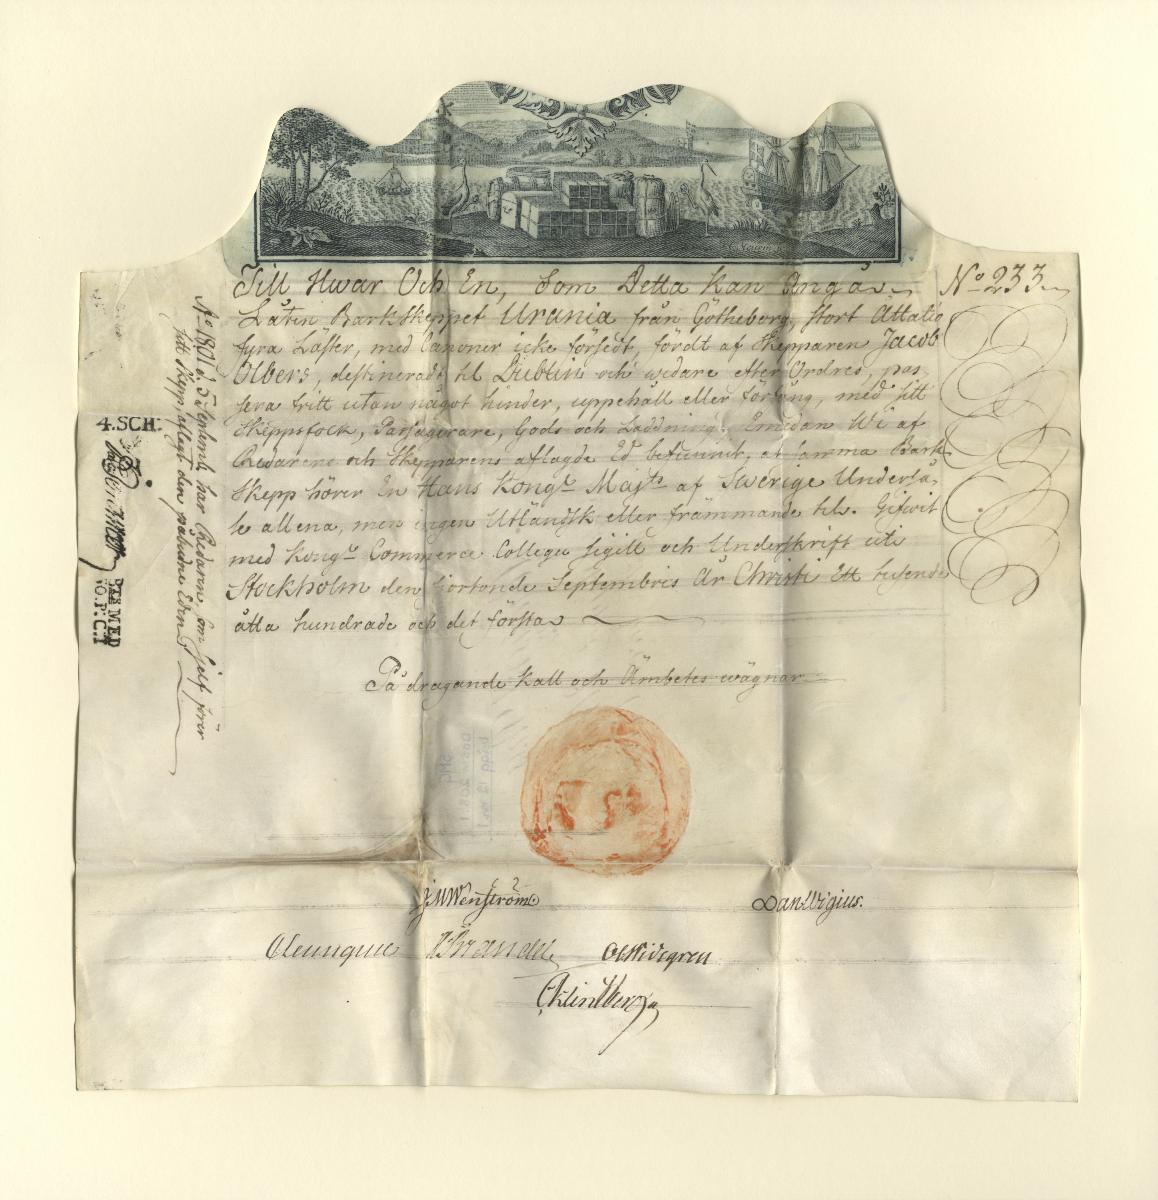 Till Hwar Och En, Som Detta Kan Angå
No 233
Låten Barkskeppet Urania från Götheborg, stort Åttatio
fyra Läster, med Canoner icke försedt, fördt af Skepparen Jacob
Olbers, destineradt til Dublin och widare efter Ordres, pas-
sera fritt utan något hinder, uppehåll eller förfång, med sitt
Skeppsfock, Passagerare, Gods och Laddning. Emedan Wi af
Redarens och Skepparens aflagde Ed befunnit, at samma Bark-
skepp hörer En Hans Kongl. Majts af Swerige Underså-
te allena, men ingen Utländsk eller främmande til. Gifwit
med Kongl. Commerce Collegii sigill och Underskrift uti
Stockholm den Fjortonde Septembris År Christi Ett tusende
åtta hundrade och det första
På dragande kall och Ämbetes wägnar
A:o 1801 d. 5 Septemb. har Redaren, som sjelf förer
sitt Skepp, aflagt den påbudne Eden
4. SCH:
J M Wenström
Dan Wigius.
Brandel
Widegren
C Klintberg